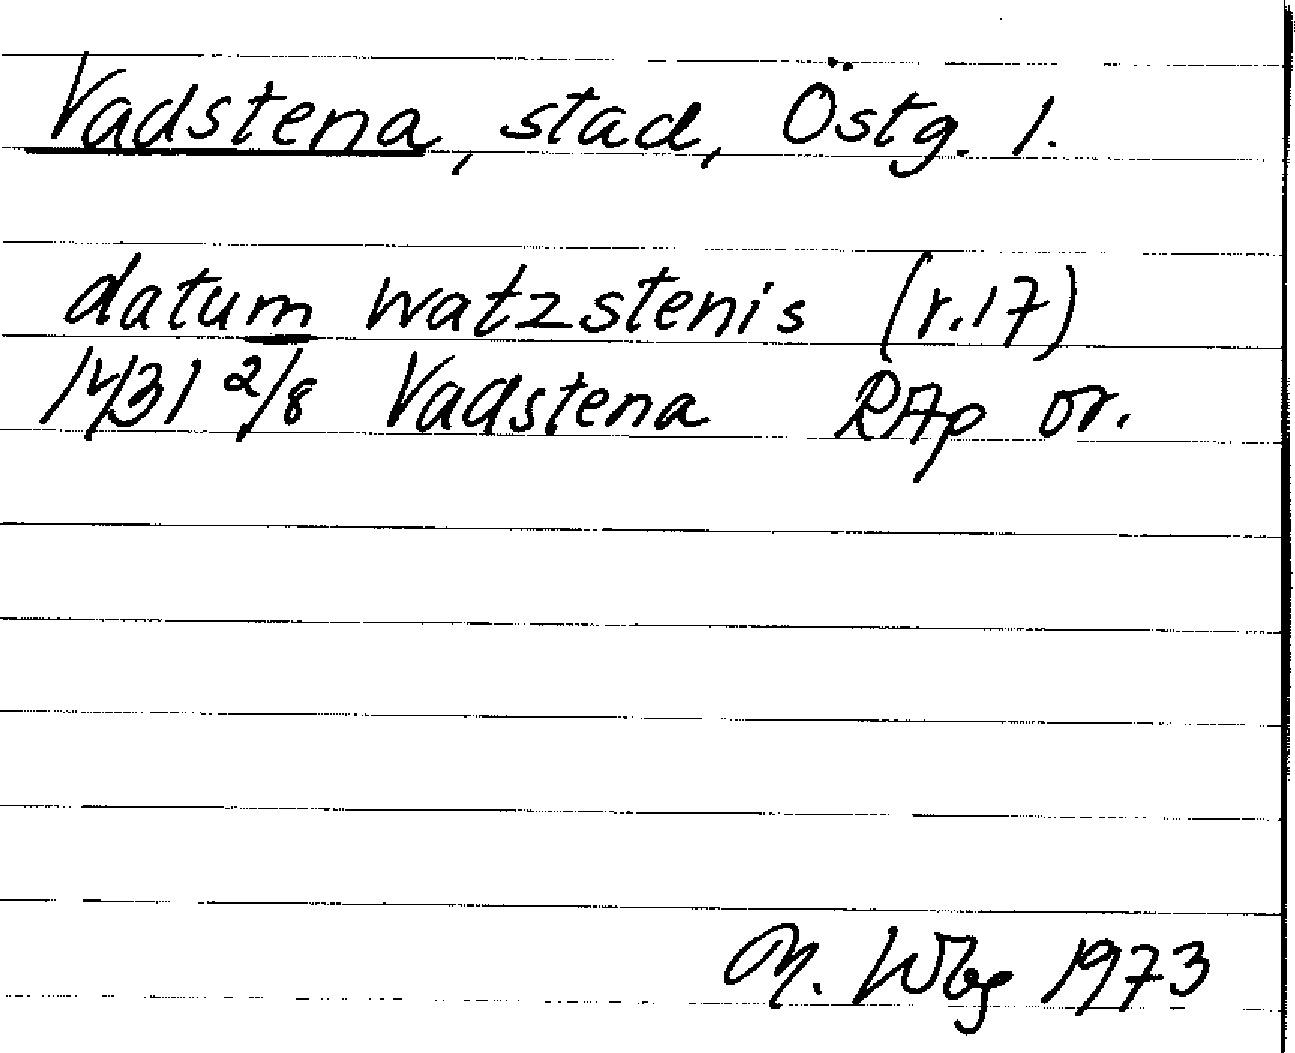 Vadstena, stad, Östg. l.
datum watzstenis (r.17)
1431 2/8 Vadstena RAp or.
M. Wbg 1973